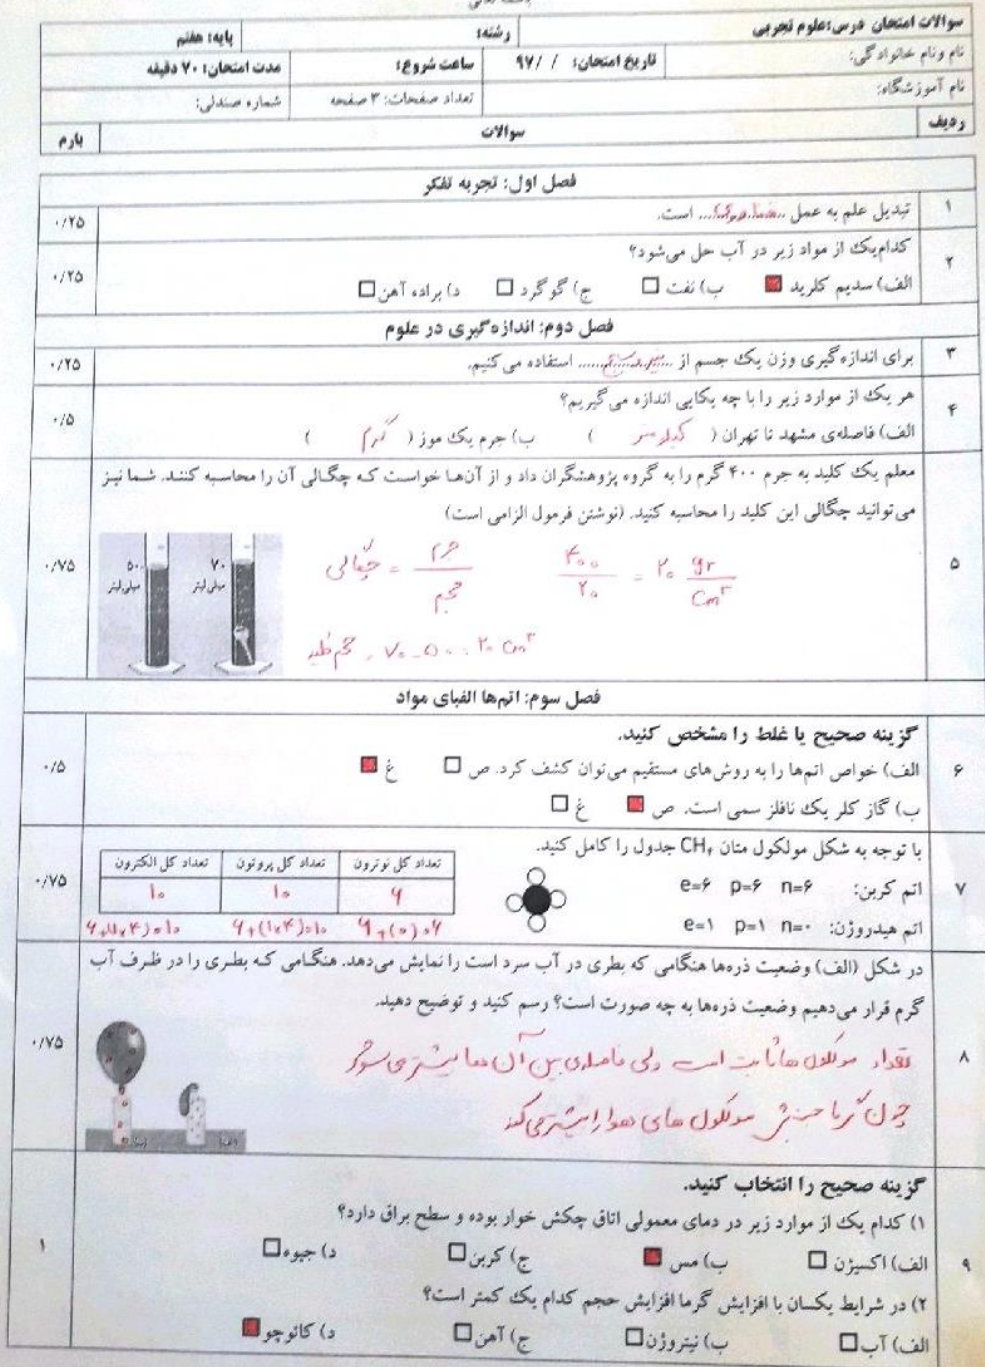 سوالات امتحان درس:علوم تجربی رشته: پایه: هفتم
نام ونام خانوادگی: تاریخ امتحان: / /۹۷ ساعت شروع: مدت امتحان: ۷۰ دقیقه
نام آموزشگاه: تعداد صفحات: ۳ صفحه شماره صندلی:
ردیف سوالات بارم
فصل اول: تجربه تفکر
۱ تبدیل علم به عمل ..فناوری.. است. ۰/۲۵
۲ کدام‌یک از مواد زیر در آب حل می‌شود؟ ۰/۲۵
الف) سدیم کلرید ب) نفت ج) گوگرد د) براده آهن
فصل دوم: اندازه‌گیری در علوم
۳ برای اندازه‌گیری وزن یک جسم از ..نیروسنج.. استفاده می‌کنیم. ۰/۲۵
۴ هر یک از موارد زیر را با چه یکایی اندازه می‌گیریم؟ ۰/۵
الف) فاصله‌ی مشهد تا تهران ( کیلومتر ) ب) جرم یک موز ( گرم )
معلم یک کلید به جرم ۴۰۰ گرم را به گروه پژوهشگران داد و از آن‌ها خواست که چگالی آن را محاسبه کنند. شما نیز
می‌توانید چگالی این کلید را محاسبه کنید. (نوشتن فرمول الزامی است)
۵ ۰/۷۵
۵۰ میلی‌لیتر ۷۰ میلی‌لیتر
چگالی = جرم / حجم ۴۰۰ / ۲۰ = ۲۰ gr / cm۳
حجم کلید = ۷۰ - ۵۰ = ۲۰ cm۳
فصل سوم: اتم‌ها الفبای مواد
گزینه صحیح یا غلط را مشخص کنید.
۶ الف) خواص اتم‌ها را به روش‌های مستقیم می‌توان کشف کرد. ص غ ۰/۵
ب) گاز کلر یک نافلز سمی است. ص غ
۷ با توجه به شکل مولکول متان CH۴ جدول را کامل کنید. ۰/۷۵
اتم کربن: e=۶ p=۶ n=۶
اتم هیدروژن: e=۱ p=۱ n=۰
تعداد کل نوترون تعداد کل پروتون تعداد کل الکترون
۶ ۱۰ ۱۰
۶+(۰)=۶ ۶+(۱×۴)=۱۰ ۶+(۱×۴)=۱۰
در شکل (الف) وضعیت ذره‌ها هنگامی که بطری در آب سرد است را نمایش می‌دهد. هنگامی که بطری را در ظرف آب
گرم قرار می‌دهیم وضعیت ذره‌ها به چه صورت است؟ رسم کنید و توضیح دهید.
۸ ۰/۷۵
تعداد مولکول ها ثابت است ولی فاصله‌ی بین آن ها بیشتر می شود
چون گرما جنبش مولکول های هوا را بیشتر می کند
گزینه صحیح را انتخاب کنید.
۱) کدام یک از موارد زیر در دمای معمولی اتاق چکش خوار بوده و سطح براق دارد؟
۹ الف) اکسیژن ب) مس ج) کربن د) جیوه ۱
۲) در شرایط یکسان با افزایش گرما افزایش حجم کدام یک کمتر است؟
الف) آب ب) نیتروژن ج) آهن د) کائوچو